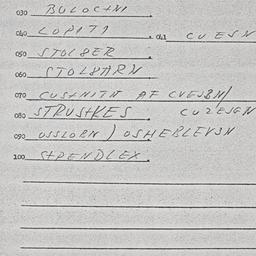 030 BULOCHNI
040 LOPITI . 041 CUESN
050 STOLBER
060 STOLBARN
070 CUSHNITN AF CVEJBN/
080 STRUSHKES CUZESGN
090 OSSLOBN / OSHEBLEVSN
100 SHPENDLEX